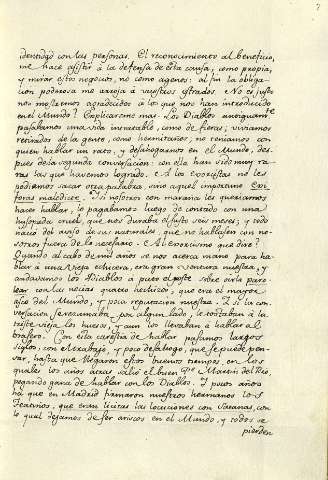 dentidad con las personas. El reconocimiento al beneficio,
me hace assistir á la defensa de esta causa, como propia,
y mirar estos negocios, no como agenos: al fin la obliga-
cion poderosa me arroja à vuestros estrados. No es justo
nos mostremos agradecidos a lo que nos han introducido
en el Mundo? Explicareme mas. Los Diablos antiguamte
pasabamos una vida intratable, como de fieras; viviamos
retirados de la gente, como hermitaños, no teniamos con
quien hablar un rato, y desahogarnos en el Mundo, des-
pues de la segunda conversacion: con ella han sido muy ra-
ras las que havemos logrado. A los exorcistas no les
podiamos sacar otra palabra, sino aquel importuno exi
foras maledicte. Si nosotros con maraña les queriamos
hacer hablar, lo pagabamos luego de contado con una
hisopada cruel, que nos duraba el susto seis meses; y todo
nacio del aviso de sus naturales, que no hablasen con no-
sotros fuera de lo necesario. El exorcismo que dire?
Quando al cabo de mil años se nos acerca mano para ha-
blar a una Vieja echicera, era gran ventura nuestra, y
andabamos los Diablos a puto el postre sobre avia par-
lear con la necia quatro hechizos, que era el mayor
asco del Mundo, y poca reputacion nuestra. I si la con-
versacion se rezumaba por algun lado, le tostaban à la
triste vieja los huesos, y aun los llevaban a hablar al
brasero. Con esta carestia de hablar pasamos largos
siglos, con el trabajo, y poco desahogo, que se puede pen-
sar, hasta que llegaron estos buenos tiempos, en los
quales los años atras salió el buen Pe Martin del Rio,
pegando gana de hablar con los Diablos. I pocos años
ha que en Madrid firmaron nuestros hermanos los
Teatinos, que eran licitas las locuciones con Satanas, con
lo qual dejamos de ser ariscos en el Mundo, y todos se
pierden